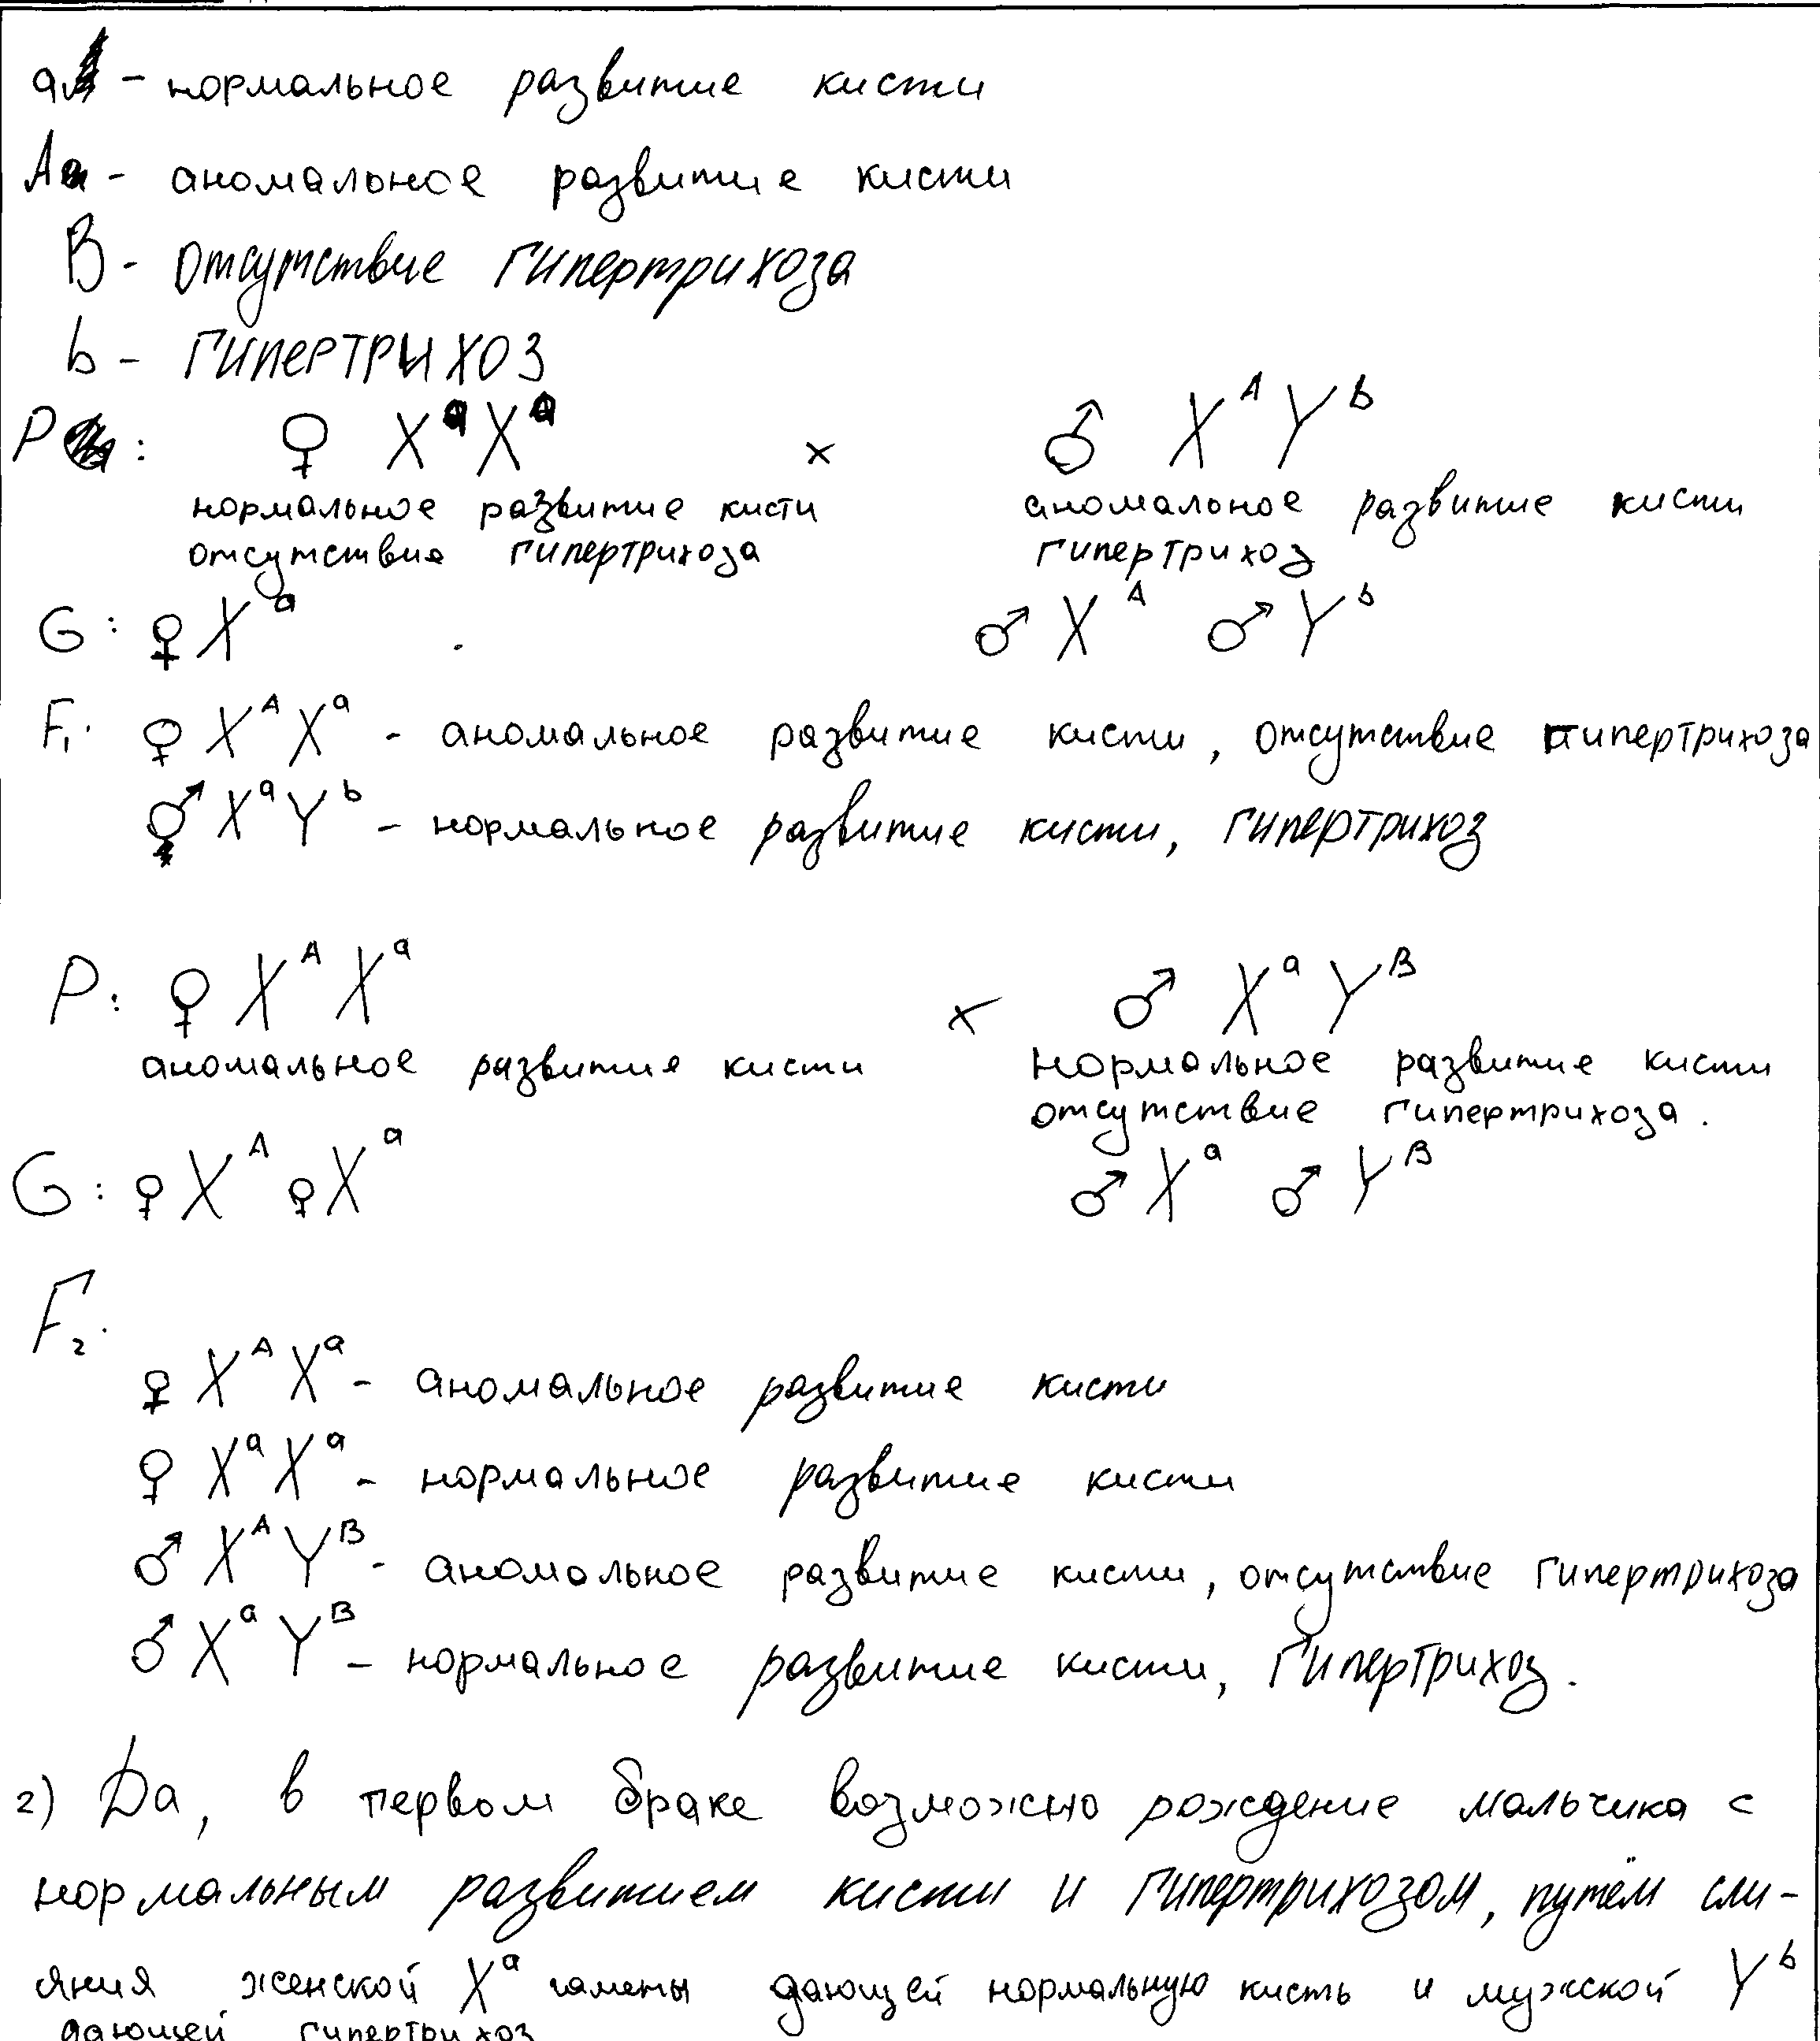 a - нормальное развитие кисти
A - аномальное развитие кисти
B - отсутствие гипертрихоза
b - гипертрихоз
P: ♀ XᵃXᵃ × ♂ XᴬYᵇ
нормальное развитие кисти аномальное развитие кисти
отсутствие гипертрихоза гипертрихоз
G: ♀Xᵃ ♂Xᴬ ♂Yᵇ
F₁: ♀ XᴬXᵃ - аномальное развитие кисти, отсутствие гипертрихоза
♂ XᵃYᵇ - нормальное развитие кисти, гипертрихоз
P: ♀ XᴬXᵃ × ♂ XᵃYᴮ
аномальное развитие кисти нормальное развитие кисти
отсутствие гипертрихоза.
G: ♀Xᴬ ♀Xᵃ ♂Xᵃ ♂Yᴮ
F₂:
♀ XᴬXᵃ - аномальное развитие кисти
♀ XᵃXᵃ - нормальное развитие кисти
♂ XᴬYᴮ - аномальное развитие кисти, отсутствие гипертрихоза
♂ XᵃYᴮ - нормальное развитие кисти, гипертрихоз.
2) Да, в первом браке возможно рождение мальчика с
нормальным развитием кисти и гипертрихозом, путём сли-
яния женской Xᵃ гаметы дающей нормальную кисть и мужской Yᵇ
дающей гипертрихоз